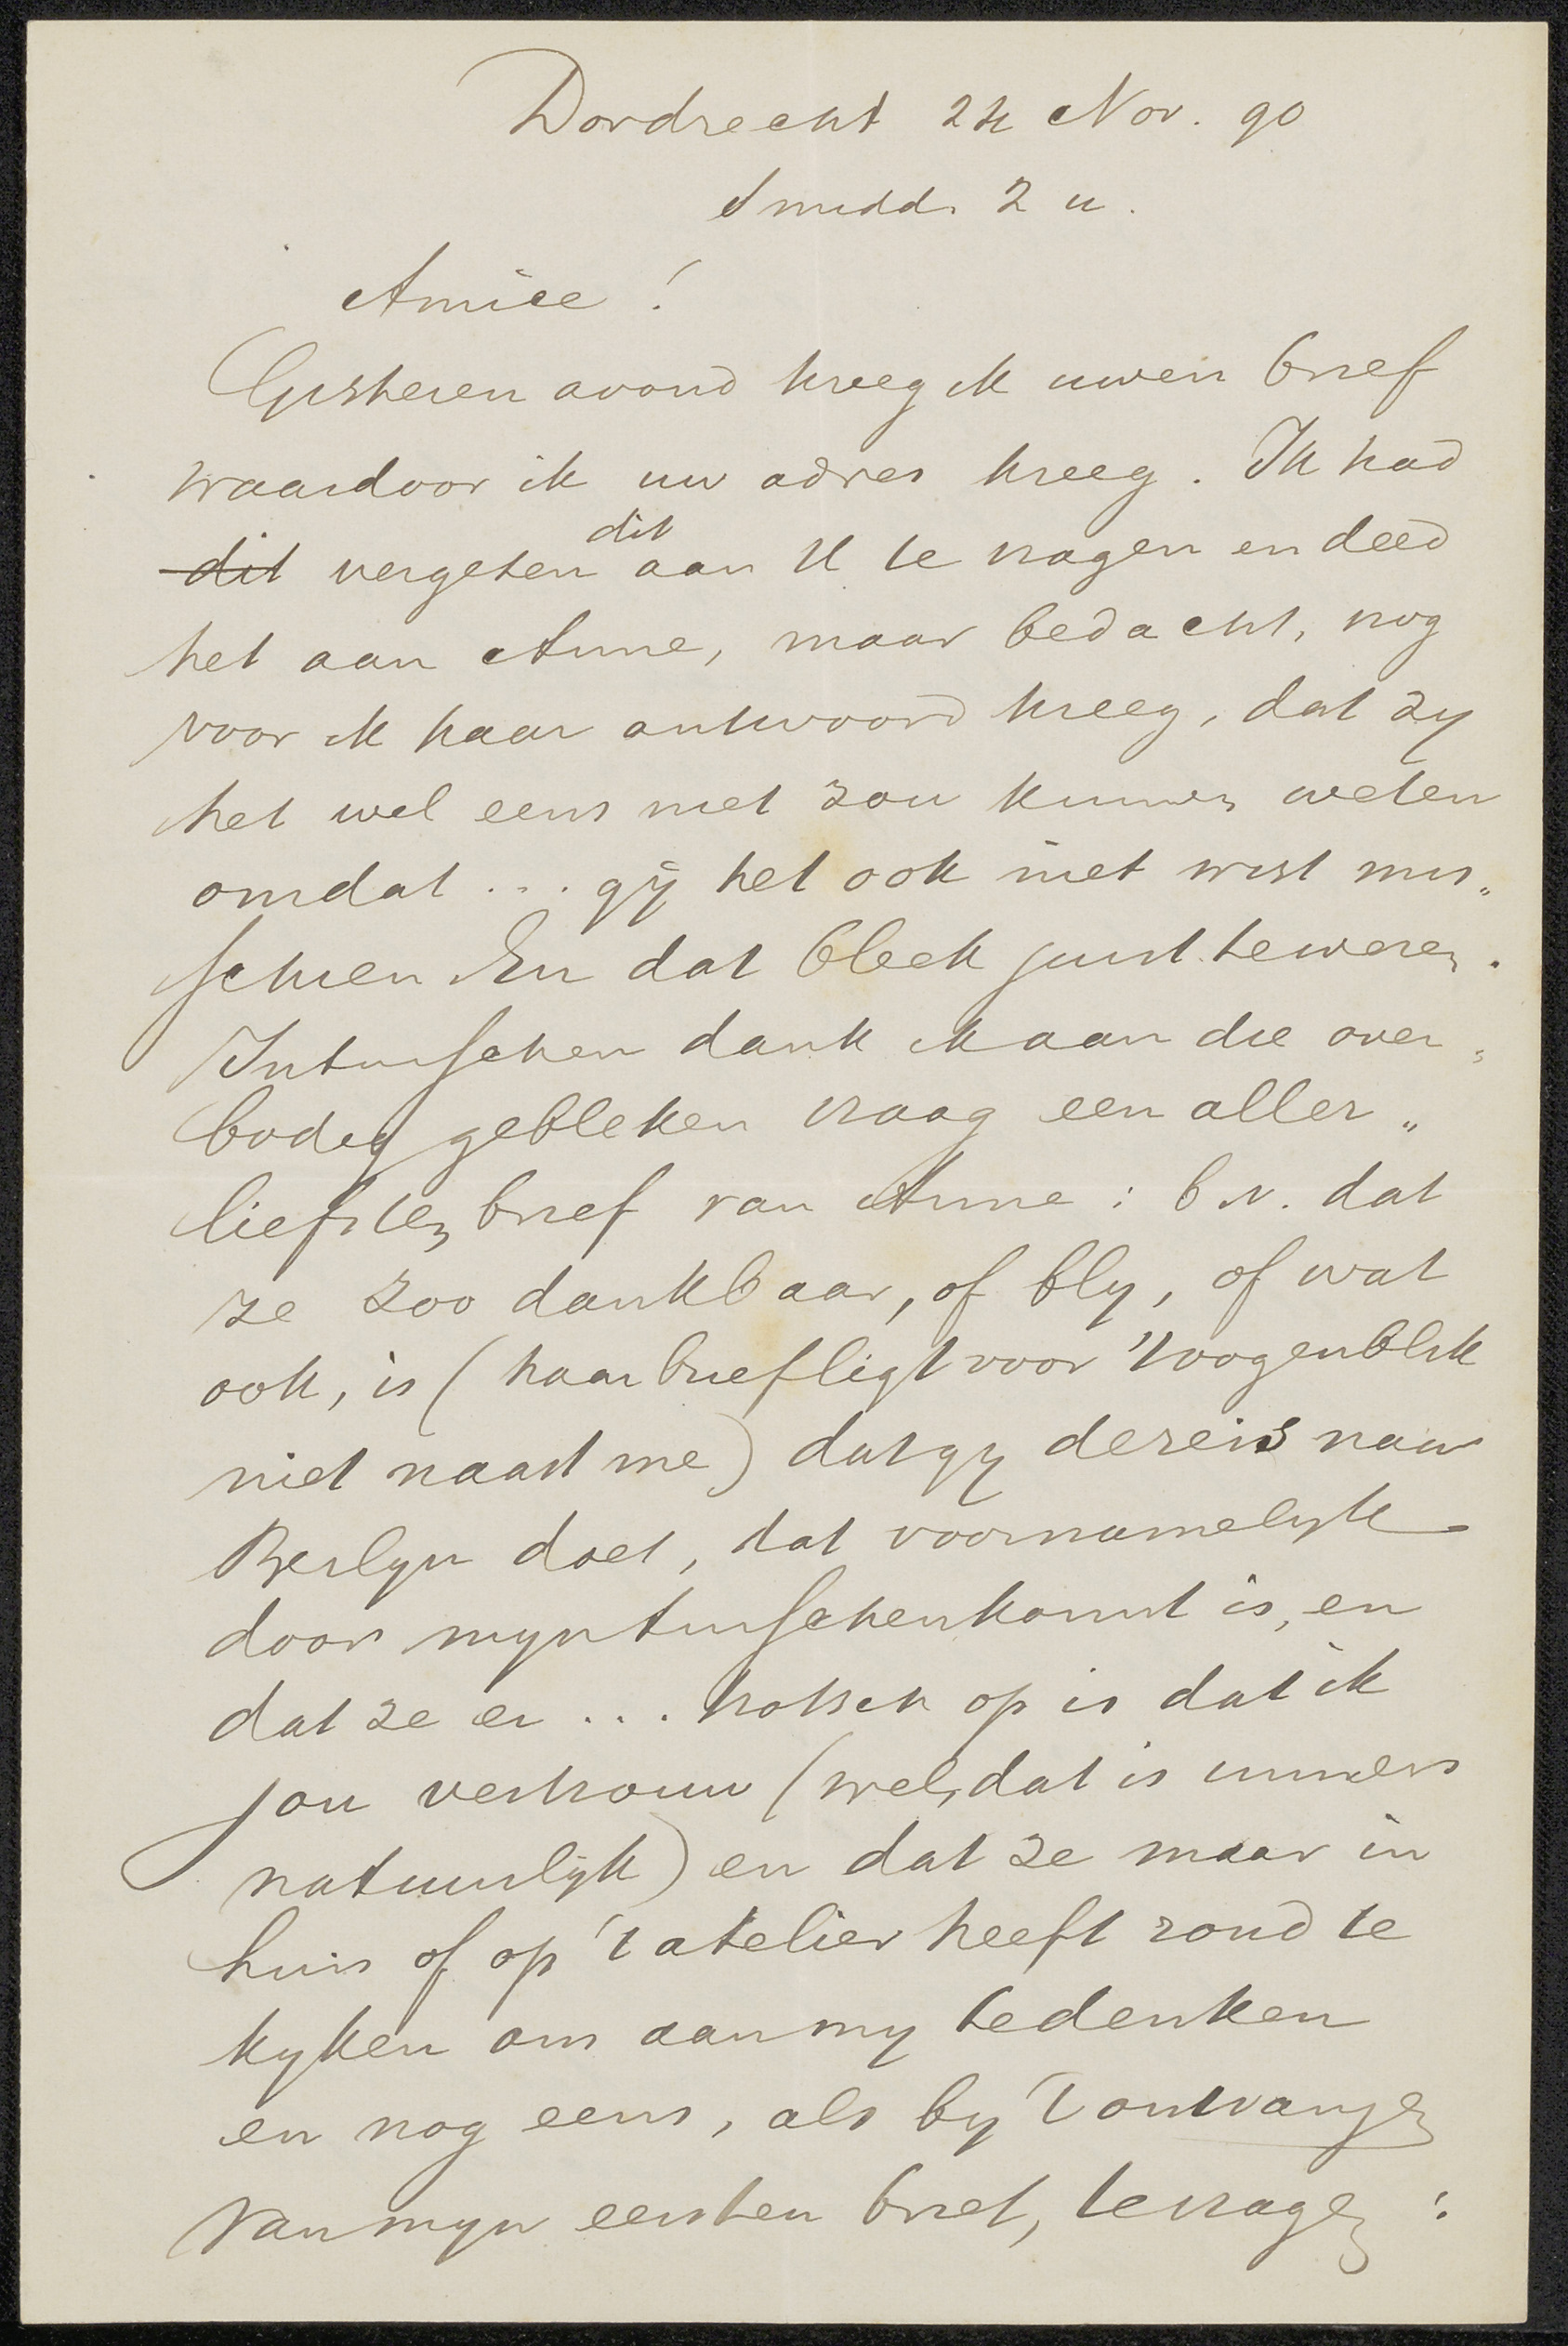 Dordrecht 24 Nov. 90
Smidd. 2 u.
Amice!
Gisteren avond kreeg ik uwen brief
waardoor ik uw adres kreeg. Ik had
dit vergeten dit aan U te vragen en deed
het aan Anne, maar bedacht, nog
voor ik haar antwoord kreeg, dat zy
het wel eens niet zou kunnen weten
omdat ... gÿ het ook niet wist mis„
schien En dat bleek juist te wezen.
Intusschen dank ik aan die over„
bodig gebleken vraag een aller„
liefsten brief van Anne: b.v. dat
ze zoo dankbaar, of bly, of wat
ook, is (haar brief ligt voor 't oogenblik
niet naast me) dat gy de reis naar
Berlyn doet, dat voornamelyk
door myn tusschenkomst is, en
dat ze er ... trotsch op is dat ik
jou vertrouw (wel, dat is immers
natuurlÿk) en dat ze maar in
huis of op 't atelier heeft rond te
kyken om aan my te denken
en nog eens, als by 't ontvangen
van myn eersten brief, te vragen: